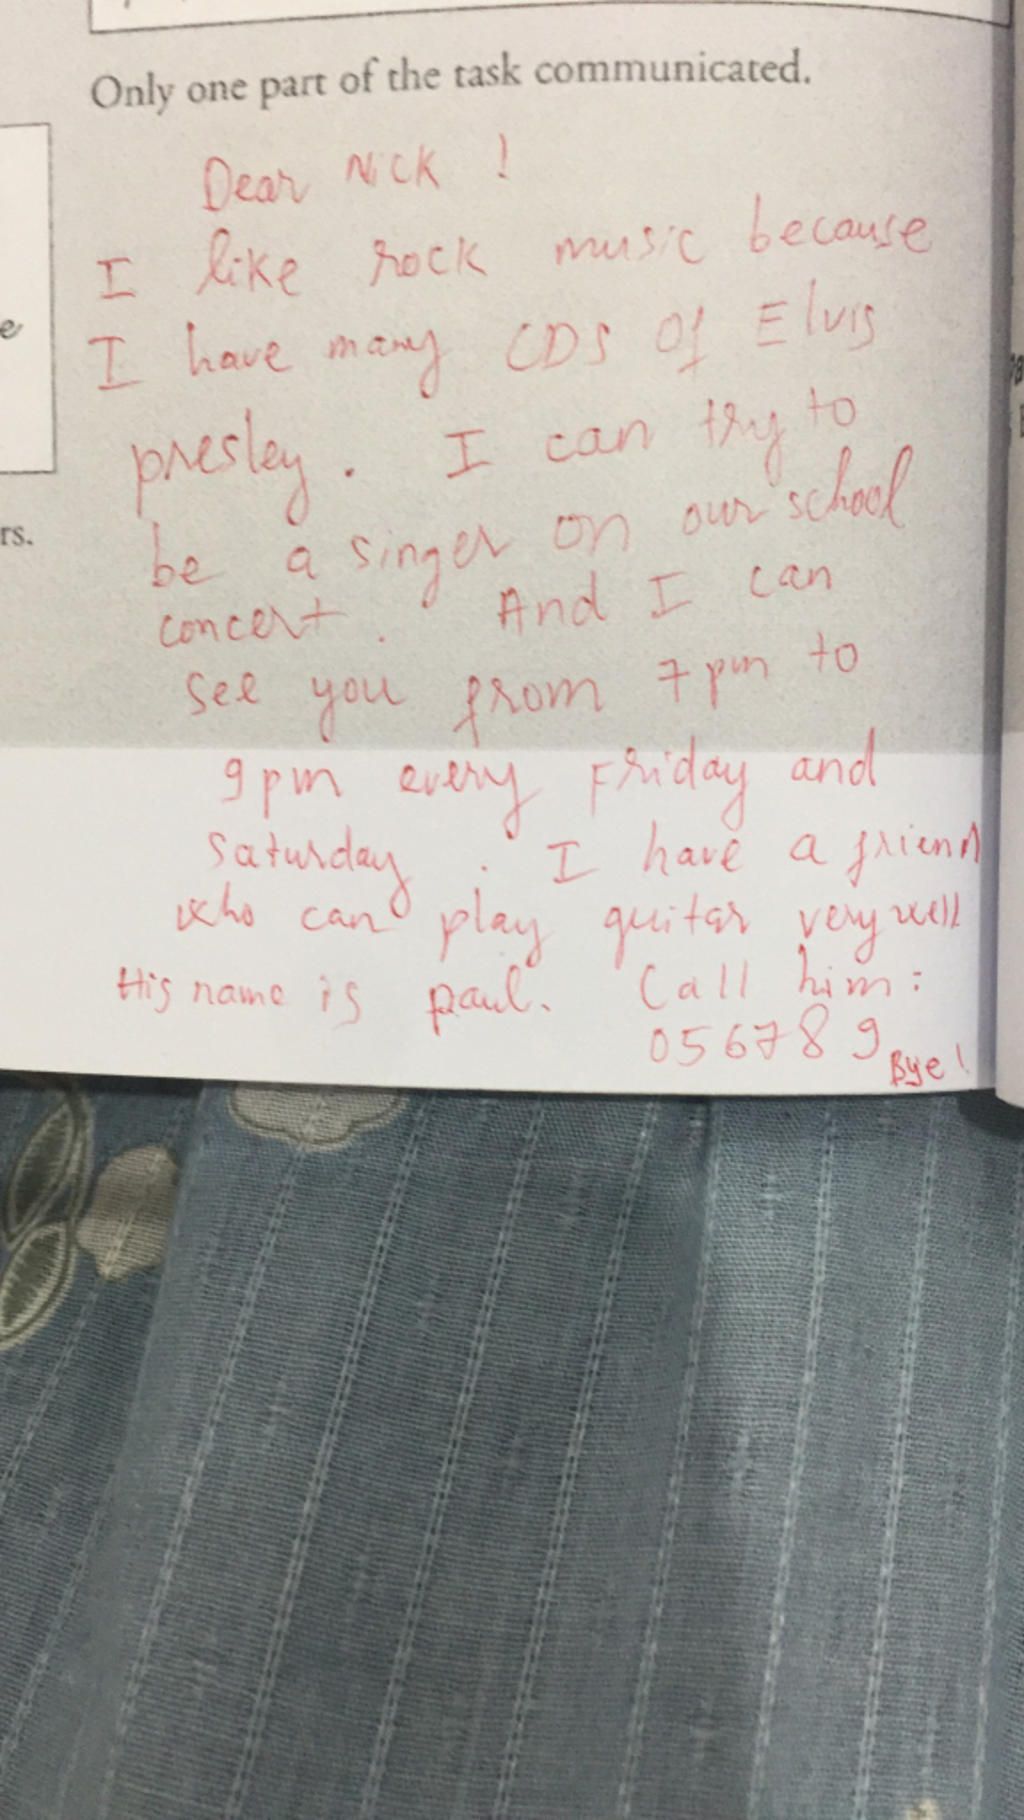 Only one part of the task communicated.
Dear Nick !
I like rock music because
I have many CDS Of Elvis
presley. I can try to
be a singer on our school
concert. And I can
see you from 7 pm to
9 pm every Friday and
saturday. I have a friend
who can play guitar very well
His name is paul. Call him:
056789 Bye!
e
rs.